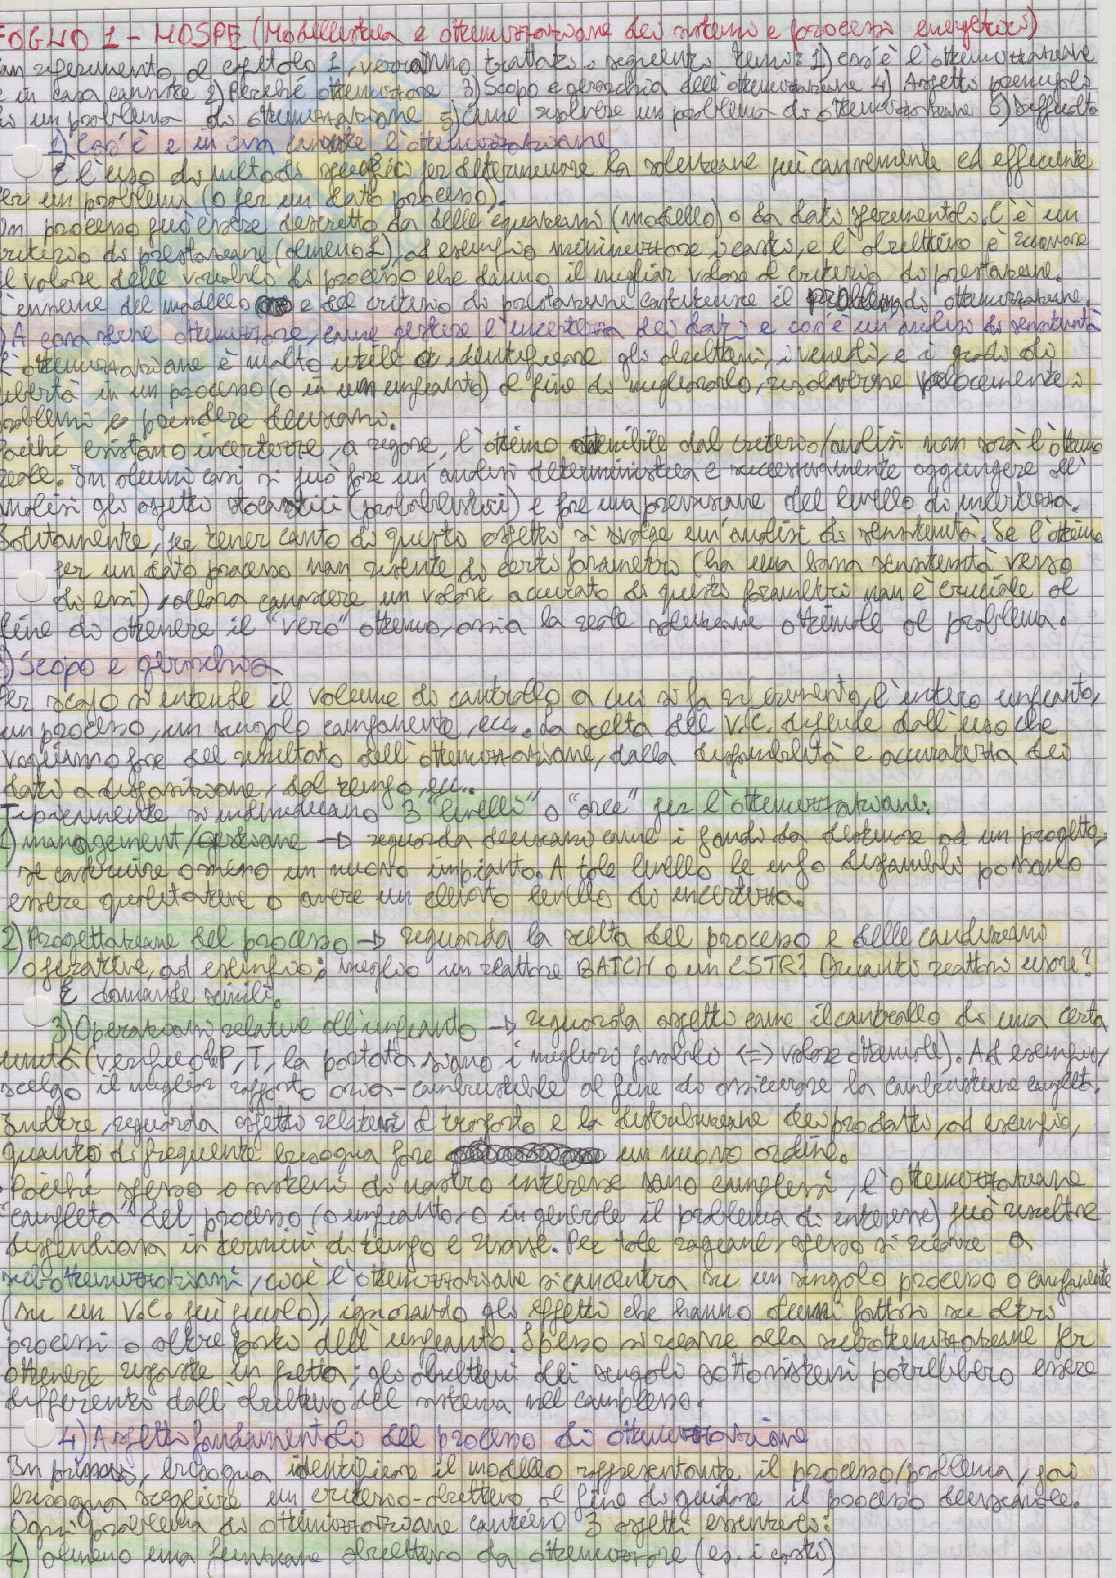 FOGLIO 1 - MOSPE (Modellistica e ottimizzazione dei sistemi e processi energetici)
Con riferimento al capitolo 1, verranno trattati i seguenti temi: 1) cos'è l'ottimizzazione
e in cosa consiste 2) Perché ottimizzare 3) Scopo e gerarchia dell'ottimizzazione 4) Aspetti principali
di un problema di ottimizzazione 5) Come risolvere un problema di ottimizzazione 6) Difficoltà
1) Cos'è e in cosa consiste l'ottimizzazione
È l'uso di metodi specifici per determinare la soluzione più conveniente ed efficiente
per un problema (o per un dato processo).
Un processo può essere descritto da delle equazioni (modello) o da dati sperimentali. C'è un
criterio di prestazione (almeno 1), ad esempio minimizzare i costi, e l'obiettivo è trovare
il valore delle variabili di processo che danno il miglior valore al criterio di prestazione.
L'insieme del modello e del criterio di prestazione costituisce il problema di ottimizzazione.
2) A cosa serve ottimizzare, come gestire l'incertezza dei dati e cos'è un'analisi di sensitività
L'ottimizzazione è molto utile a identificare gli obiettivi, i vincoli, e i gradi di
libertà in un processo (o in un impianto) al fine di migliorarlo, risolverne velocemente i
problemi e prendere decisioni.
Poiché esistono incertezze, a rigore, l'ottimo ottenibile dal criterio/analisi non sarà l'ottimo
reale. In alcuni casi si può fare un'analisi deterministica e successivamente aggiungere all'
analisi gli aspetti stocastici (probabilistici) e fare una previsione del livello di incertezza.
Solitamente, per tener conto di questo aspetto si svolge un'analisi di sensitività. Se l'ottimo
per un dato processo non risente di certi parametri (ha una bassa sensitività verso
di essi) allora conoscere un valore accurato di questi parametri non è cruciale al
fine di ottenere il "vero" ottimo, ossia la reale soluzione ottimale al problema.
3) Scopo e gerarchia
Per scopo si intende il volume di controllo a cui si fa riferimento, l'intero impianto,
un processo, un singolo componente, ecc. La scelta del V.C. dipende dall'uso che
vogliamo fare del risultato dell'ottimizzazione, dalla disponibilità e accuratezza dei
dati a disposizione, dal tempo, ecc.
Tipicamente si individuano 3 "livelli" o "aree" per l'ottimizzazione:
1) management/gestione → riguarda decisioni come i fondi da destinare ad un progetto,
se costruire o meno un nuovo impianto. A tale livello le info disponibili possono
essere qualitative o avere un elevato livello di incertezza.
2) Progettazione del processo → riguarda la scelta del processo e delle condizioni
operative, ad esempio: meglio un reattore BATCH o un CSTR? Quanti reattori usare?
E domande simili.
3) Operazioni relative all'impianto → riguarda aspetti come il controllo di una certa
unità (verifico che P, T, la portata siano i migliori possibili <=> valore ottimale). Ad esempio,
scelgo il miglior rapporto aria-combustibile al fine di assicurare la combustione completa.
Inoltre, riguarda aspetti relativi al trasporto e la distribuzione dei prodotti, ad esempio,
quanto di frequente bisogna fare un nuovo ordine.
Poiché spesso i sistemi di nostro interesse sono complessi, l'ottimizzazione
"completa" del processo (o impianto, o in generale il problema di interesse) può risultare
dispendiosa in termini di tempo e risorse. Per tale ragione, spesso si ricorre a
sub-ottimizzazioni, cioè l'ottimizzazione si concentra su un singolo processo o componente
(su un V.C. più piccolo), ignorando gli effetti che hanno alcuni fattori su altri
processi o altre parti dell'impianto. Spesso si ricorre alla sub-ottimizzazione per
ottenere risposte in fretta; gli obiettivi dei singoli sottosistemi potrebbero essere
differenti dall'obiettivo del sistema nel complesso.
4) Aspetti fondamentali del processo di ottimizzazione
In primis, bisogna identificare il modello rappresentante il processo/problema, poi
bisogna scegliere un criterio-obiettivo al fine di guidare il processo decisionale.
Ogni problema di ottimizzazione contiene 3 aspetti essenziali:
1) almeno una funzione obiettivo da ottimizzare (es. i costi)